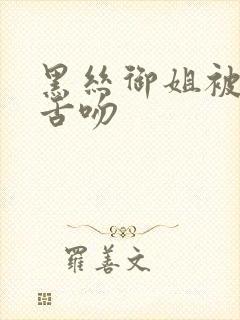 黑丝御姐被
舌吻
罗善文